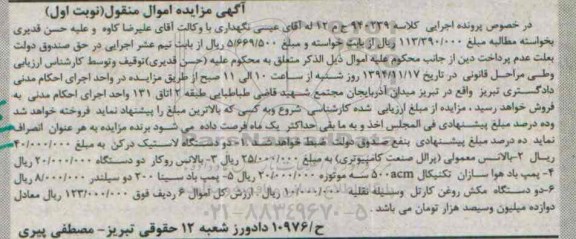 آگهی مزایده اموال منقول(نوبت اول)
در خصوص پرونده اجرایی کلاسه ۹۴۰۲۳۹ ج م ۱۲ له آقای عیسی نگهداری با وکالت آقای علیرضا کاوه و علیه حسن قدیری
بخواسته مطالبه مبلغ ۱۱۳/۳۹۰/۰۰۰ ریال از بابت خواسته و مبلغ ۵/۶۶۹/۵۰۰ ریال از بابت نیم عشر اجرایی در حق صندوق دولت
بعلت عدم پرداخت دین از جانب محکوم علیه اموال ذیل الذکر متعلق به محکوم علیه (حسن قدیری)توقیف وتوسط کارشناس ارزیابی
وطی مراحل قانونی در تاریخ ۱۳۹۴/۱۱/۱۷ روز شنبه از ساعت ۱۰ الی ۱۱ صبح از طریق مزایده در واحد اجرای احکام مدنی
دادگستری تبریز واقع در تبریز میدان آذربایجان مجتمع شهید قاضی طباطبایی طبقه ۲ اتاق ۱۳۱ واحد اجرای احکام مدنی به
فروش خواهد رسید ، مزایده از مبلغ ارزیابی شده کارشناسی شروع وبه کسی که بالاترین مبلغ را پیشنهاد نماید فروخته خواهد شد
وده درصد مبلغ پیشنهادی فی المجلس اخذ و به ما بقی حداکثر یک ماه فرصت داده می شود برنده مزایده به هر عنوان انصراف
نماید ده درصد مبلغ پیشنهادی بنفع صندوق دولت ضبط خواهد شد. دستگاه لاستیک درکن به مبلغ ۴۰/۰۰۰/۰۰۰
ریال ۲-بالانس معمولی (پرالل صنعت کامپیوتری) به مبلغ ۲۵/۰۰۰/۰۰۰ ریال ۳- بالانس روکار دو دستگاه ۲۰/۰۰۰/۰۰۰ ریال
۴- پمپ باد هوا سازان تکنیکال ۵۰۰acm سه موتوره ۲۰/۰۰۰/۰۰۰ ریال ۵- پمپ باد سینا ۲۰۰ دو سیلندر ۸/۰۰۰/۰۰۰ ریال
۶-دو دستگاه مکش روغن کارتل وسیله نقلیه ۱۰/۰۰۰/۰۰۰ ریال . ارزش کل اموال ۶ ردیف فوق ۱۲۳/۰۰۰/۰۰۰ ریال معادل
دوازده میلیون وسیصد هزار تومان می باشد .
۰۲۱-۸۸۳۴۹۶۷۰-۵
ح/۱۰۹۷۶ دادورز شعبه ۱۲ حقوقی تبریز- مصطفی پیری